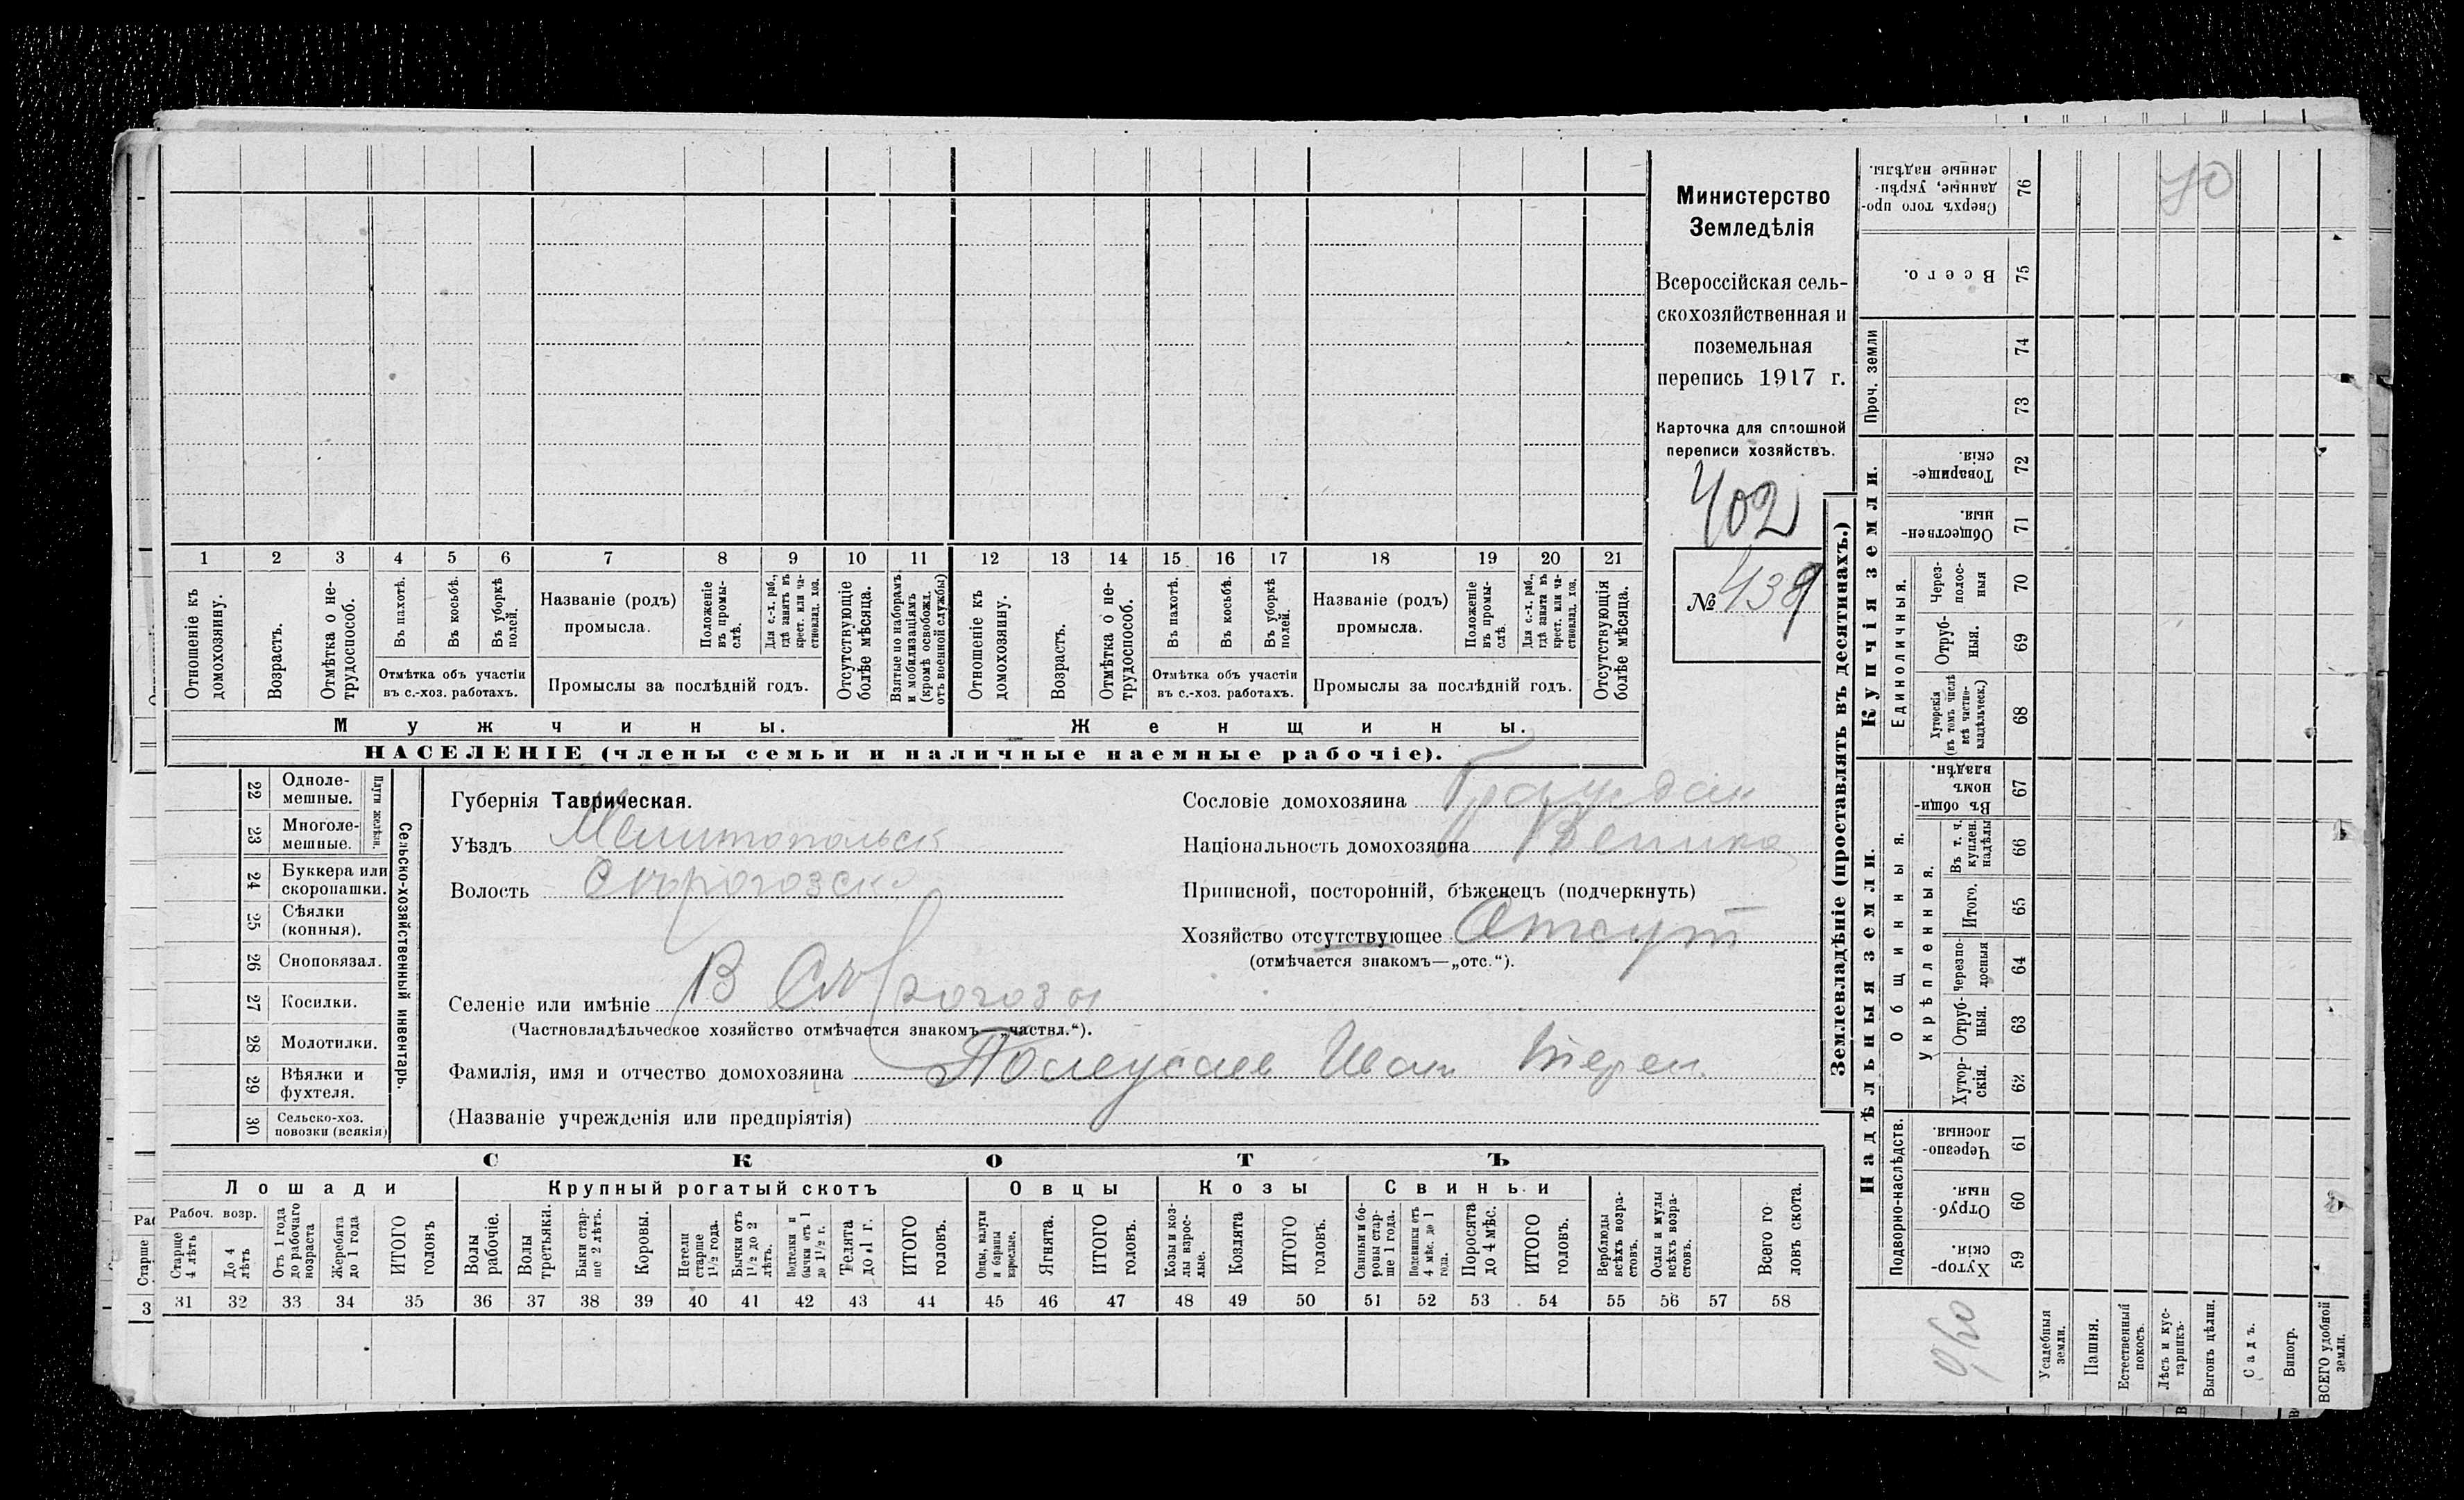 Министерство
Земледѣлія
Всероссійская сель-
скохозяйственная и
поземельная
перепись 1917 г.
Карточка для сплошной
переписи хозяйствъ.
402
№ 439
1 2 3 4 5 6 7 8 9 10 11 12 13 14 15 16 17 18 19 20 21
Отношеніе къ домохозяину.
Возрастъ.
Отмѣтка о не-трудоспособ.
Въ пахотѣ.
Въ косьбѣ.
Въ уборкѣ полей.
Отмѣтка объ участіи
въ с.-хоз. работахъ.
Названіе (родъ)
промысла.
Положеніе въ промы-слѣ.
Для с.-х. раб., гдѣ занятъ въ крест. или ча-стновлад. хоз.
Промыслы за послѣдній годъ.
Отсутствующіе болѣе мѣсяца.
Взятые по наборамъ и мобилизаціямъ (кромѣ освобожд. отъ военной службы)
Отношеніе къ домохозяину.
Возрастъ.
Отмѣтка о не-трудоспособ.
Въ пахотѣ.
Въ косьбѣ.
Въ уборкѣ полей.
Отмѣтка объ участіи
въ с.-хоз. работахъ.
Названіе (родъ)
промысла.
Положеніе въ промы-слѣ.
Для с.-х. раб., гдѣ занята въ крест. или ча-стновлад. хоз.
Промыслы за послѣдній годъ.
Отсутствующія болѣе мѣсяца.
Мужчины.
Женщины.
НАСЕЛЕНІЕ (члены семьи и наличные наемные рабочіе).
22 Одноле-мешные.
23 Многоле-мешные.
Плуги желѣзн.
24 Буккера или скоропашки.
25 Сѣялки (конныя).
26 Сноповязал.
27 Косилки.
28 Молотилки.
29 Вѣялки и фухтеля.
30 Сельско-хоз. повозки (всякія)
Сельско-хозяйственный инвентарь.
Губернія Таврическая.
Уѣздъ Мелитопольск
Волость Сѣрогозск
Селеніе или имѣніе В Сѣрогозы
(Частновладѣльческое хозяйство отмѣчается знакомъ—„частвл.“).
Фамилія, имя и отчество домохозяина Иван Терен.
(Названіе учрежденія или предпріятія)
Сословіе домохозяина Граждан
Національность домохозяина Велико
Приписной, посторонній, бѣженецъ (подчеркнуть)
Хозяйство отсутствующее Отсут
(отмѣчается знакомъ—„отс.“).
СКОТЪ
Лошади
Крупный рогатый скотъ
Овцы
Козы
Свиньи
Рабоч. возр.
Старше 4 лѣтъ
До 4 лѣтъ
Отъ 1 года до рабочаго возраста
Жеребята до 1 года
ИТОГО головъ
Волы рабочіе.
Волы третьяки.
Быки стар-ше 2 лѣтъ.
Коровы.
Нетели старше 1½ года.
Бычки отъ 1½ до 2 лѣтъ.
Подтелки и бычки отъ 1 до 1½ г.
Телята до 1 г.
ИТОГО головъ.
Овцы, валухи и бараны взрослые.
Ягнята.
ИТОГО головъ.
Козы и коз-лы взрос-лые.
Козлята
ИТОГО головъ.
Свиньи и бо-ровы стар-ше 1 года.
Подсвинки отъ 4 мѣс. до 1 года.
Поросята до 4 мѣс.
ИТОГО головъ.
Верблюды всѣхъ возра-стовъ.
Ослы и мулы всѣхъ возра-стовъ.
Всего го-ловъ скота.
31 32 33 34 35 36 37 38 39 40 41 42 43 44 45 46 47 48 49 50 51 52 53 54 55 56 57 58
Землевладѣніе (проставлять въ десятинахъ.)
Надѣльныя земли.
Купчія земли.
Проч. земли
Подворно-наслѣдств.
Общинныя.
Укрѣпленныя.
Единоличныя.
Сверхъ того про-данные, укрѣп-ленные надѣлы. 76
Всего. 75
74
73
Товарище-скія. 72
Обществен-ныя. 71
Через-полос-ныя 70
Отруб-ныя. 69
Хуторскія (въ томъ числѣ всѣ частно-владѣльческ.) 68
Въ общи-номъ владѣн. 67
Въ т. ч. куплен. надѣлы 66
Итого. 65
Черезпо-лосныя 64
Отруб-ныя. 63
Хутор-скія. 62
Черезпо-лосныя. 61
Отруб-ныя. 60
Хутор-скія. 59
Усадебныя земли.
Пашня.
Естественный покосъ.
Лѣсъ и кус-тарникъ.
Выгонъ цѣлин.
Садъ.
Виногр.
ВСЕГО удобной земли.